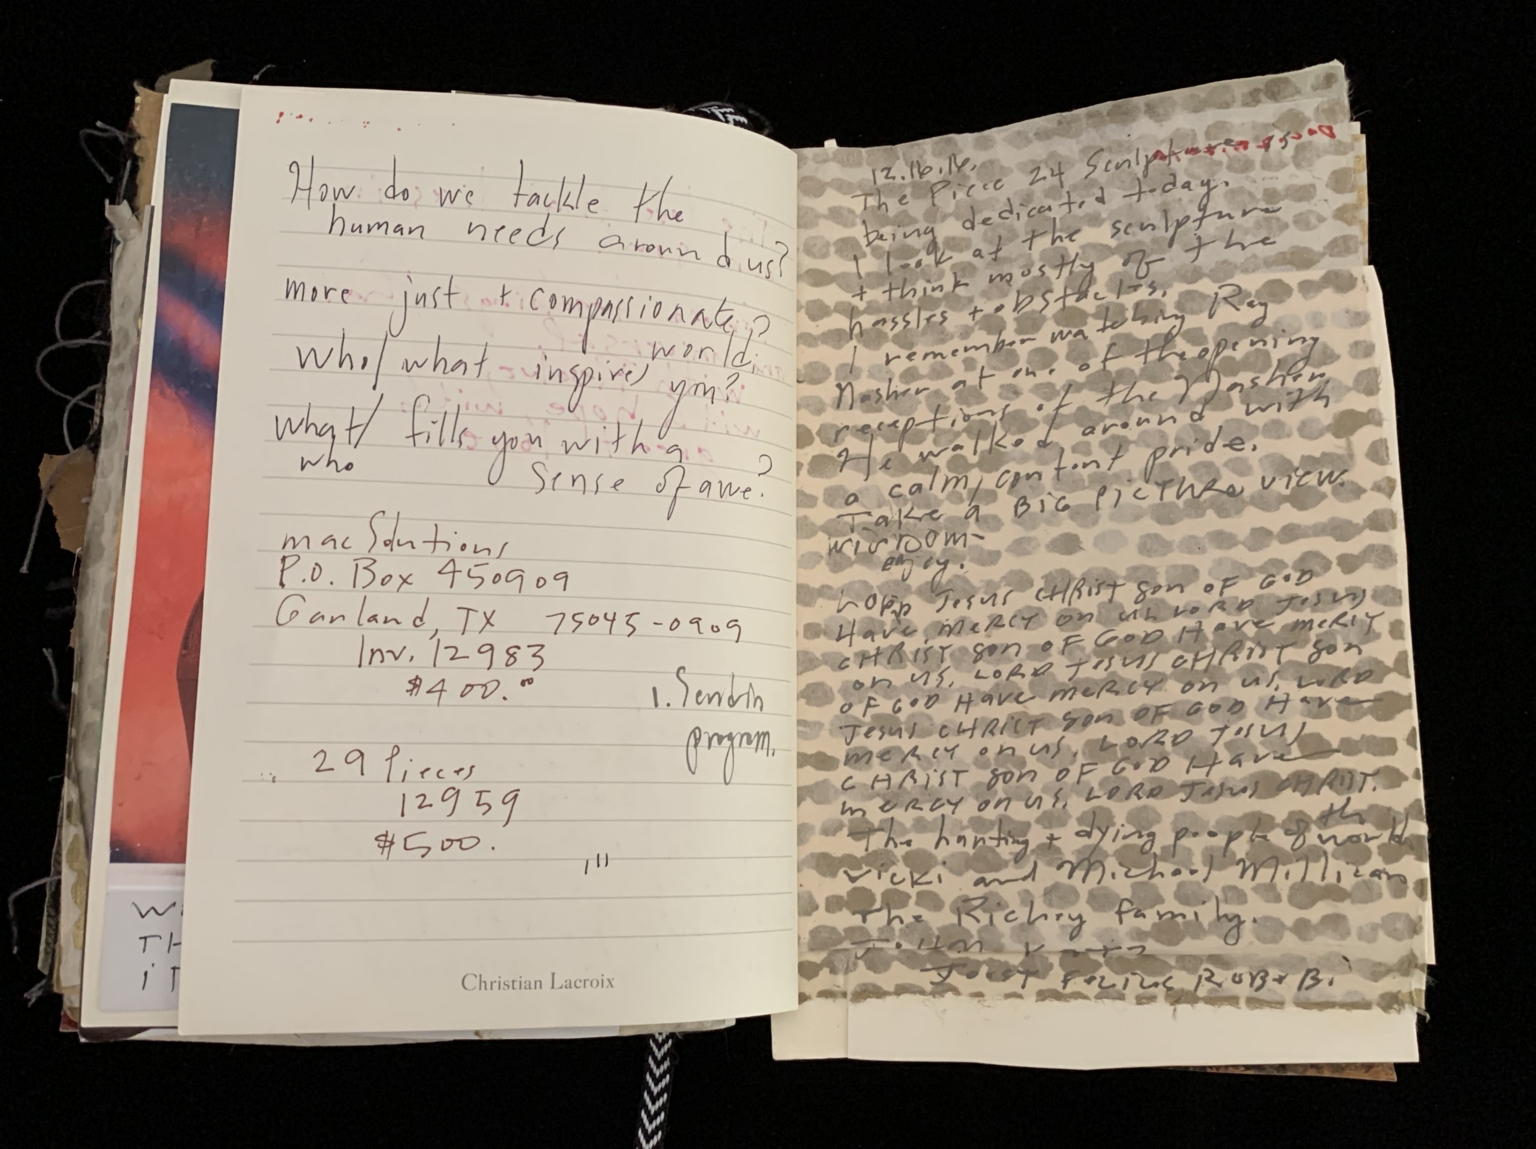 How do we tackle the
human needs around us?
more just + compassionate?
world
who/what inspires you?
what/ fills you with a
who sense of awe?
mac Solutions
P.O. Box 450909
Garland, TX 75045-0909
Inv. 12983
$400.00
1. Send in
program.
29 Pieces
12959
$500.
Christian Lacroix
W
TH
iT
12.16.16.
The Piece 24 Sculpture is
being dedicated today.
I look at the sculpture
+ think mostly of the
hassles + obstacles.
I remember watching Ray
Nasher at one of the opening
receptions of the Nasher
He walked around with
a calm, content pride.
Take a BiG PiCTURe view.
wisdom-
enjoy.
LORD Jesus CHRiST son OF GOD
Have meRCY on us LORD Jesus
CHRiST son OF GOD Have meRCY
on us. LORD Jesus CHRiST son
OF GOD Have meRCY on us. LORD
Jesus CHRiST son OF GOD Have
meRCY on us. LORD Jesus
CHRiST son OF GOD Have
meRCY on us. LORD Jesus CHRiST.
The hurting + dying people of the world
Vicki and Michael Milligan
The Richey family.